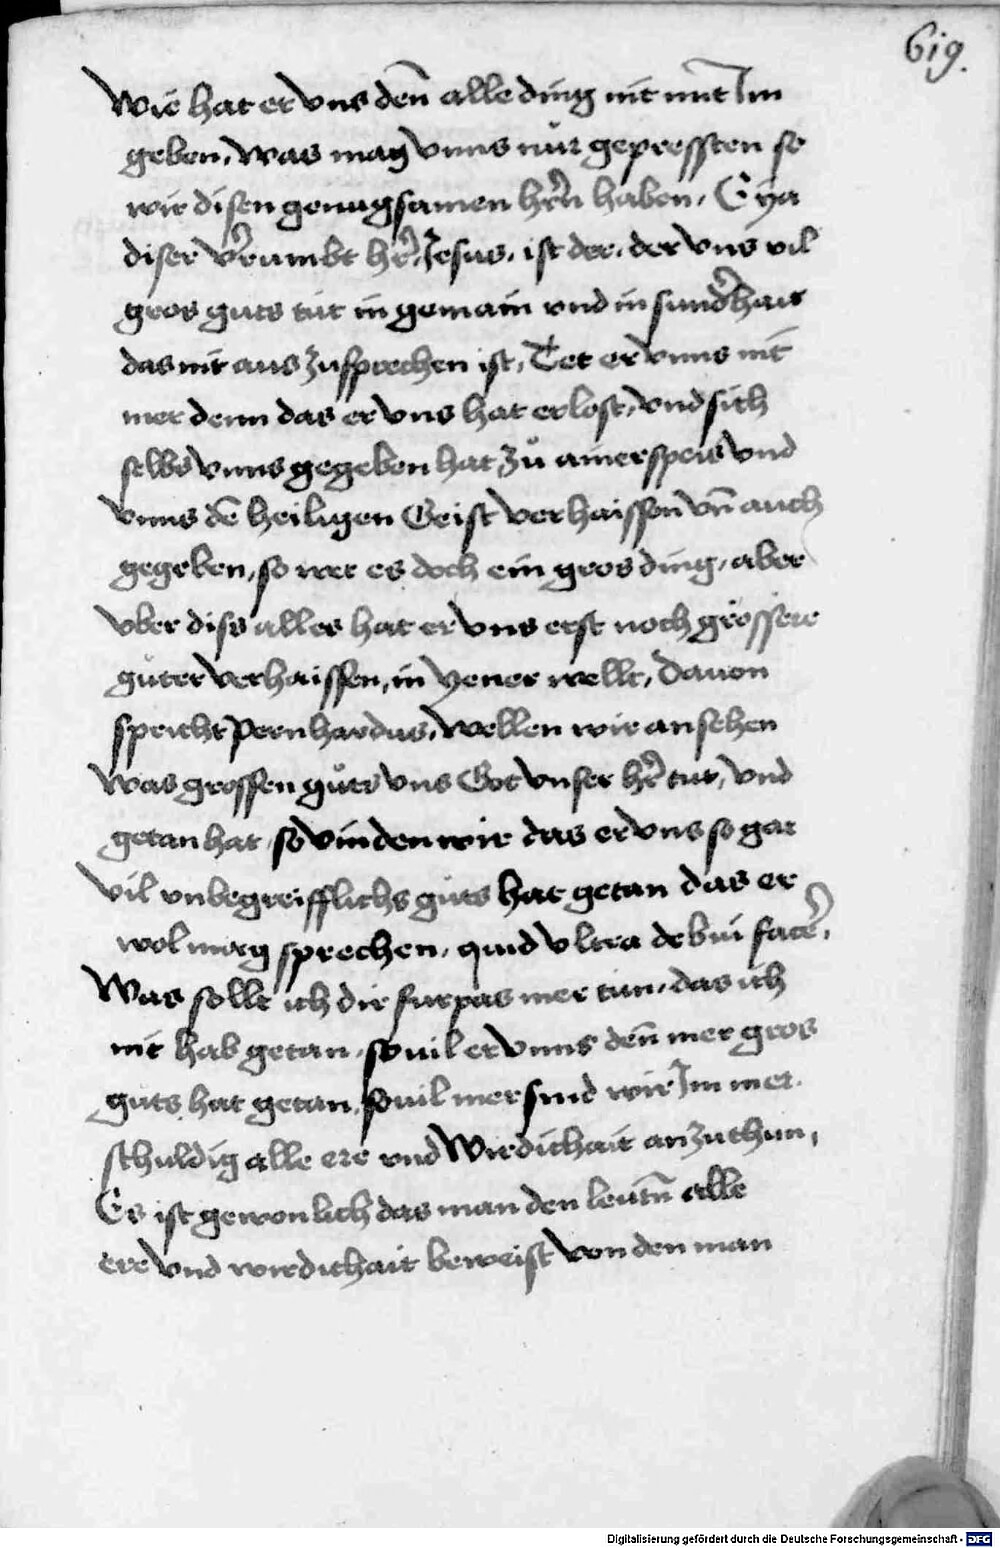 619.
Wie hat er vns deñ alle ding nit mit Im
geben, was mag vnns nur gepressten so
wir disen genugsamen hr̃n haben, Eya
diser v̾rumbt hr̃, Jesus, ist der, der vns vil
gros guts tut in gemain vnd in sund̾hait
das nit aus zusprechen ist, Tet er vnns nit
mer denn das er vns hat erlost, vnd sich
selbs vnns gegeben hat zů ainer speis vnd
vnns dē heiligen Geist verhaissen vñ auch
gegeben, so wer es doch ein gros ding, aber
vber diss alles hat er vns erst noch grössere
gůter verhaissen, in yener wellt, Dauon
spricht Pernhardus, Wellen wir ansehen
was grossen gůts vns Got vnser hr̃ tut, vnd
getan hat, so vinden wir das er vns so gar
vil vnbegreifflichs guts hat getan das er
wol mag sprechen, quid vltra debui facer̃,
Was sollt ich dir furpas mer tun, das ich
nit hab getan, so uil er vnns deñ mer gros
guts hat getan, souil mer sind wir Im mer
schuldig alle ere vnd Wirdichait anzuthun,
Es ist gewonlich das man den leutñ alle
ere vnd wirdichait beweist von den man
Digitalisierung gefördert durch die Deutsche Forschungsgemeinschaft - DFG